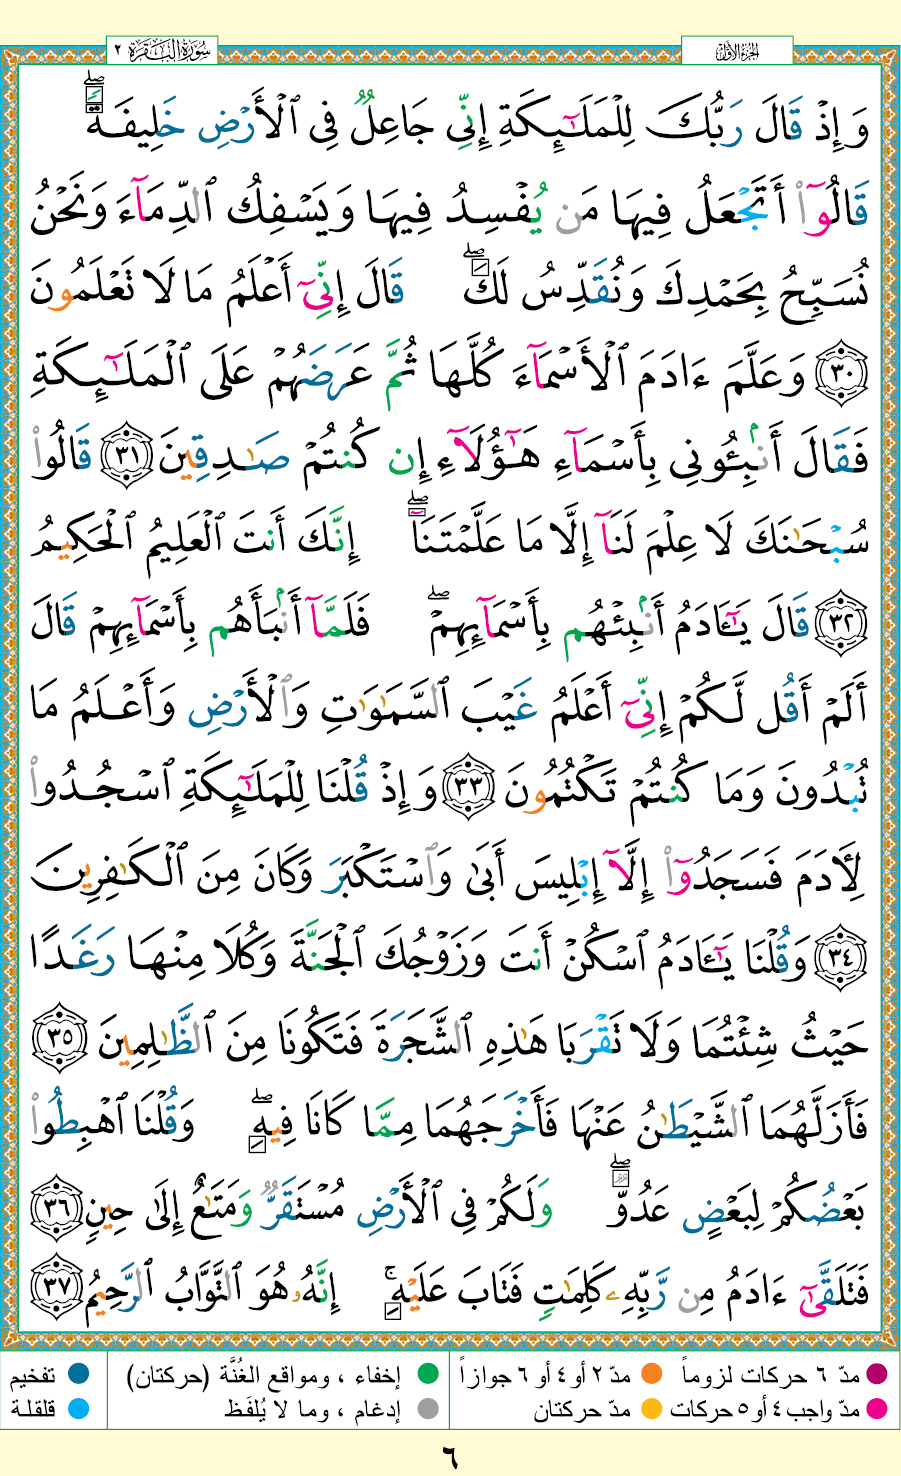 الجزء الأول
سورة البقرة ٢
وَإِذْ قَالَ رَبُّكَ لِلْمَلَـٰٓئِكَةِ إِنِّى جَاعِلٌ فِى ٱلْأَرْضِ خَلِيفَةً ۖ
قَالُوٓا۟ أَتَجْعَلُ فِيهَا مَن يُفْسِدُ فِيهَا وَيَسْفِكُ ٱلدِّمَآءَ وَنَحْنُ
نُسَبِّحُ بِحَمْدِكَ وَنُقَدِّسُ لَكَ ۖ قَالَ إِنِّىٓ أَعْلَمُ مَا لَا تَعْلَمُونَ
٣٠ وَعَلَّمَ ءَادَمَ ٱلْأَسْمَآءَ كُلَّهَا ثُمَّ عَرَضَهُمْ عَلَى ٱلْمَلَـٰٓئِكَةِ
فَقَالَ أَنۢبِـُٔونِى بِأَسْمَآءِ هَـٰٓؤُلَآءِ إِن كُنتُمْ صَـٰدِقِينَ ٣١ قَالُوا۟
سُبْحَـٰنَكَ لَا عِلْمَ لَنَآ إِلَّا مَا عَلَّمْتَنَآ ۖ إِنَّكَ أَنتَ ٱلْعَلِيمُ ٱلْحَكِيمُ
٣٢ قَالَ يَـٰٓـَٔادَمُ أَنۢبِئْهُم بِأَسْمَآئِهِمْ ۖ فَلَمَّآ أَنۢبَأَهُم بِأَسْمَآئِهِمْ قَالَ
أَلَمْ أَقُل لَّكُمْ إِنِّىٓ أَعْلَمُ غَيْبَ ٱلسَّمَـٰوَٰتِ وَٱلْأَرْضِ وَأَعْلَمُ مَا
تُبْدُونَ وَمَا كُنتُمْ تَكْتُمُونَ ٣٣ وَإِذْ قُلْنَا لِلْمَلَـٰٓئِكَةِ ٱسْجُدُوا۟
لِـَٔادَمَ فَسَجَدُوٓا۟ إِلَّآ إِبْلِيسَ أَبَىٰ وَٱسْتَكْبَرَ وَكَانَ مِنَ ٱلْكَـٰفِرِينَ
٣٤ وَقُلْنَا يَـٰٓـَٔادَمُ ٱسْكُنْ أَنتَ وَزَوْجُكَ ٱلْجَنَّةَ وَكُلَا مِنْهَا رَغَدًا
حَيْثُ شِئْتُمَا وَلَا تَقْرَبَا هَـٰذِهِ ٱلشَّجَرَةَ فَتَكُونَا مِنَ ٱلظَّـٰلِمِينَ ٣٥
فَأَزَلَّهُمَا ٱلشَّيْطَـٰنُ عَنْهَا فَأَخْرَجَهُمَا مِمَّا كَانَا فِيهِ ۖ وَقُلْنَا ٱهْبِطُوا۟
بَعْضُكُمْ لِبَعْضٍ عَدُوٌّ ۖ وَلَكُمْ فِى ٱلْأَرْضِ مُسْتَقَرٌّ وَمَتَـٰعٌ إِلَىٰ حِينٍ ٣٦
فَتَلَقَّىٰٓ ءَادَمُ مِن رَّبِّهِۦ كَلِمَـٰتٍ فَتَابَ عَلَيْهِ ۚ إِنَّهُۥ هُوَ ٱلتَّوَّابُ ٱلرَّحِيمُ ٣٧
مدّ ٦ حركات لزوماً مدّ ٢ أو ٤ أو ٦ جوازاً إخفاء ، ومواقع الغُنَّة (حركتان) تفخيم
مدّ واجب ٤ أو ٥ حركات مدّ حركتان إدغام ، وما لا يُلفَظ قلقلة
٦